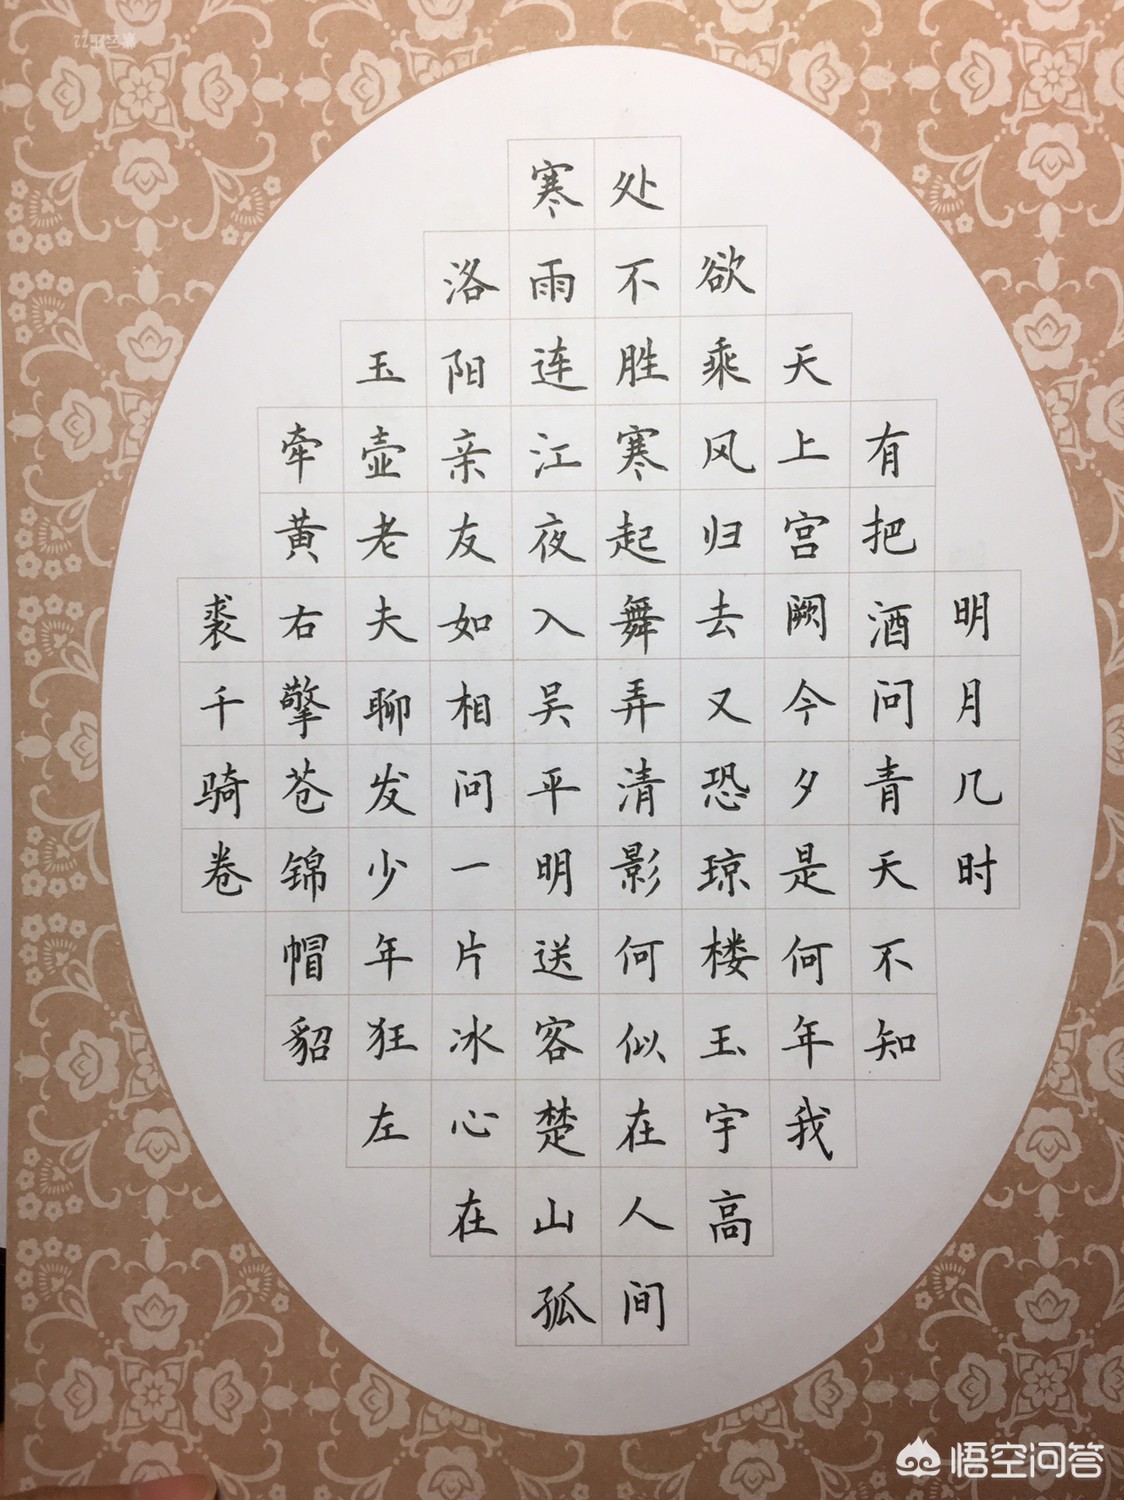 明月几时
有把酒问青天不知
天上宫阙今夕是何年我
欲乘风归去又恐琼楼玉宇高
处不胜寒起舞弄清影何似在人间
寒雨连江夜入吴平明送客楚山孤
洛阳亲友如相问一片冰心在
玉壶老夫聊发少年狂左
牵黄右擎苍锦帽貂
裘千骑卷
悟空问答